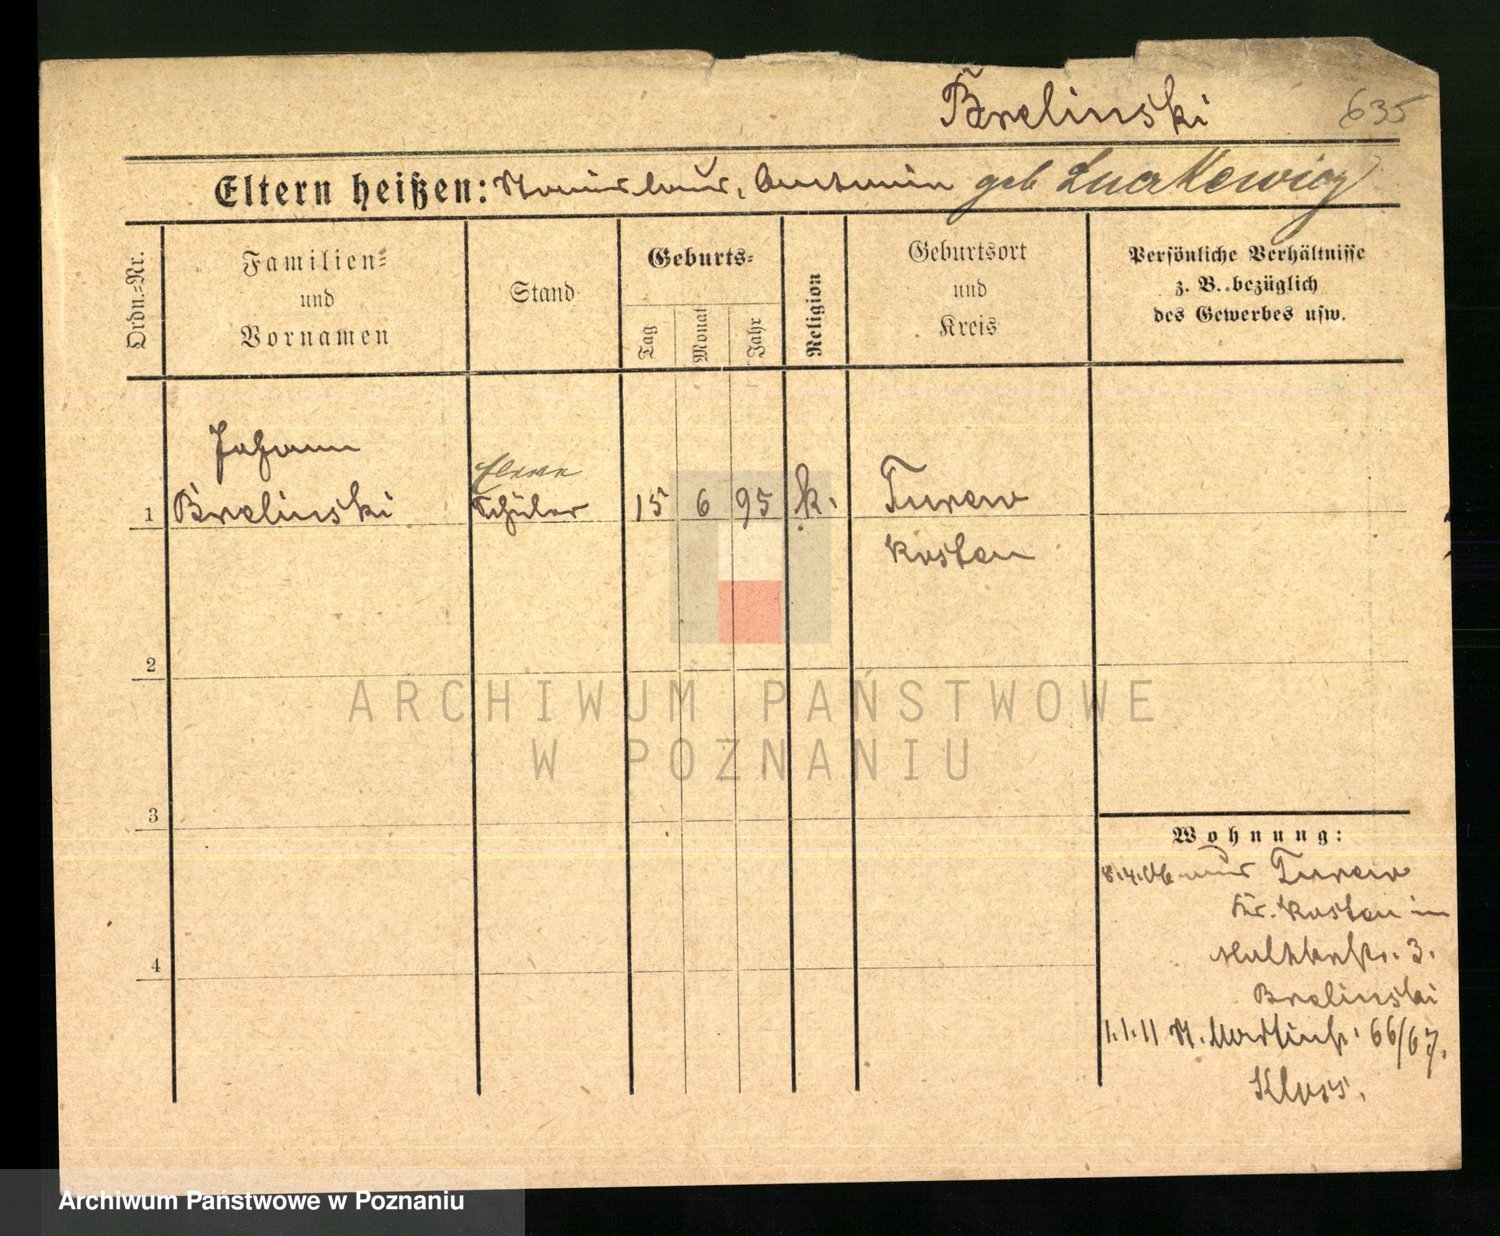 Brelinski 635
Eltern heißen: Stanislaus, Antonin geb
Ordn.-Nr.
Familien-
und
Vornamen
Stand
Geburts-
Tag
Monat
Jahr
Religion
Geburtsort
und
Kreis
Persönliche Verhältnisse
z. B. bezüglich
des Gewerbes usw.
Johann
Eleve
1 Brelinski Schüler 15 6 95 k. Turew
Kosten
2
3
4
Wohnung:
8.4.06 aus Turew
Kr. Kosten in
3.
Brelinski
1.1.11 St. Martinstr. 66/67.
Kloss.
ARCHIWUM PAŃSTWOWE
W POZNANIU
Archiwum Państwowe w Poznaniu